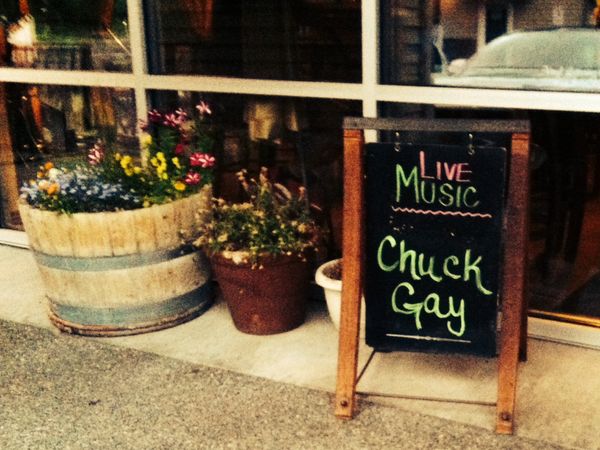 LIVE
MUSIC
Chuck
Gay